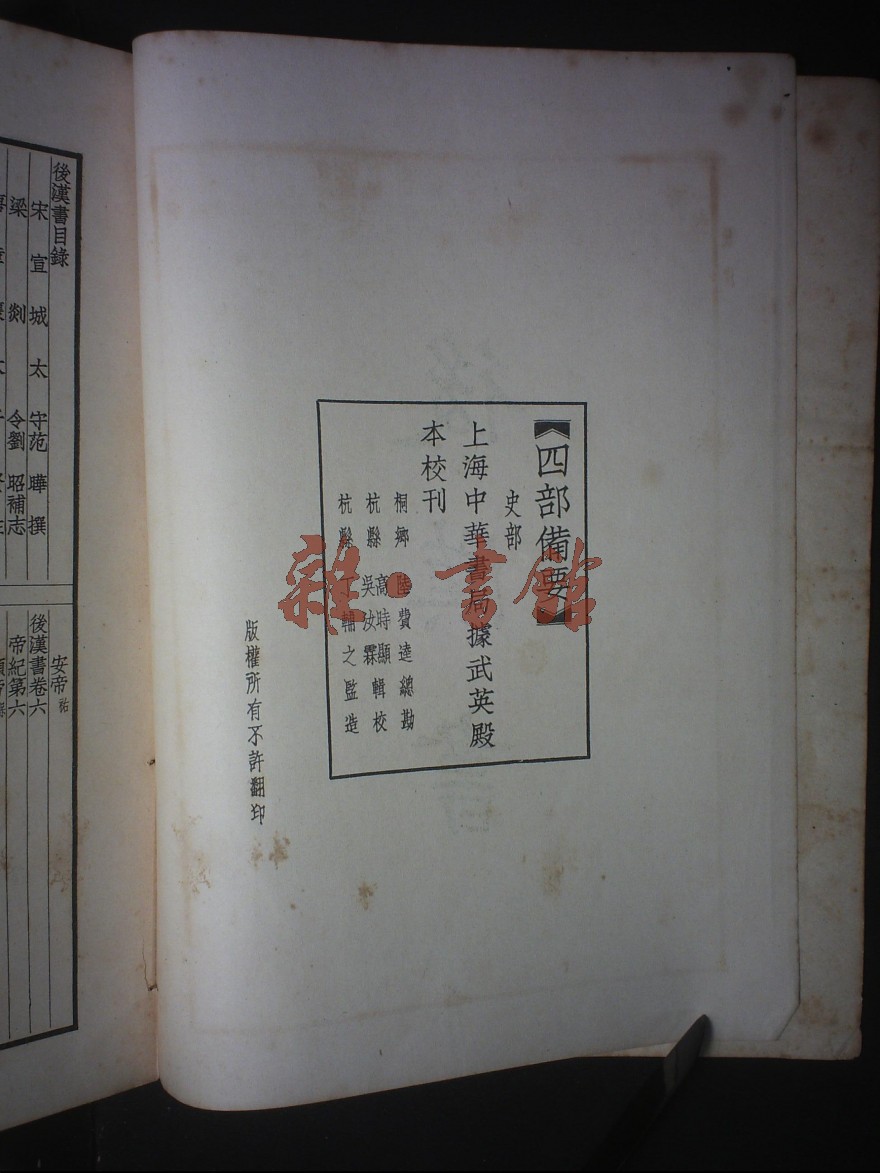 四部備要
史部
上海中華書局據武英殿
本校刊
桐鄉 陸費逵總勘
杭縣 高時顯 吳汝霖 輯校
杭縣 丁輔之監造
版權所有不許翻印
雜·書館
後漢書目錄
宋宣城太守范曄撰
梁剡令劉昭補志
安帝祜
後漢書卷六
帝紀第六